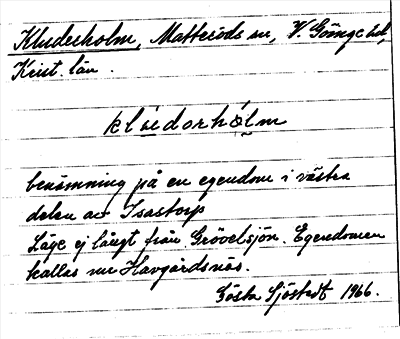 Kluderholm, Matteröds sn, V. Göinge hd,
Krist. län.
klúdorhólm
benämning på en egendom i västra
delen av Isastorp
Läge ej långt från Grövelsjön. Egendomen
kallas nu Havgårdsnäs.
Gösta Sjöstedt 1966.